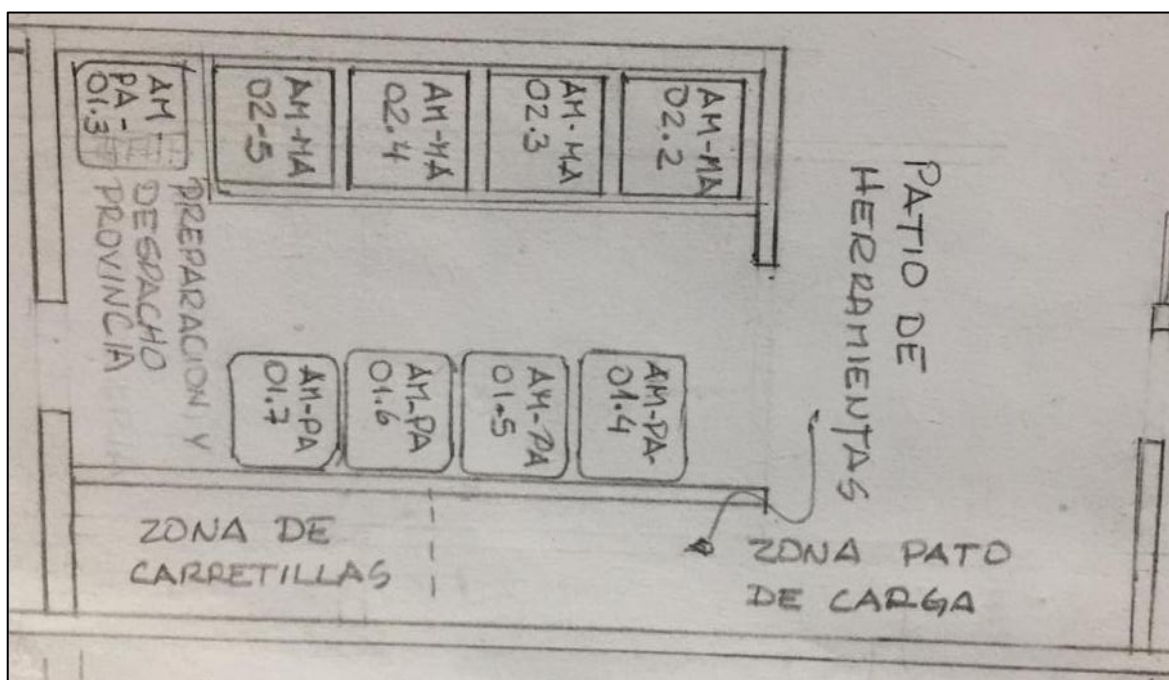 AM-
PA-
01.3
AM-MA
02-5
AM-MA
02.4
AM-MA
02.3
AM-MA
02.2
PATIO DE
HERRAMIENTAS
PREPARACION Y
DESPACHO
PROVINCIA
AM-PA
01.7
AM-PA
01.6
AM-PA
01.5
AM-PA-
01.4
ZONA DE
CARRETILLAS
ZONA PATO
DE CARGA